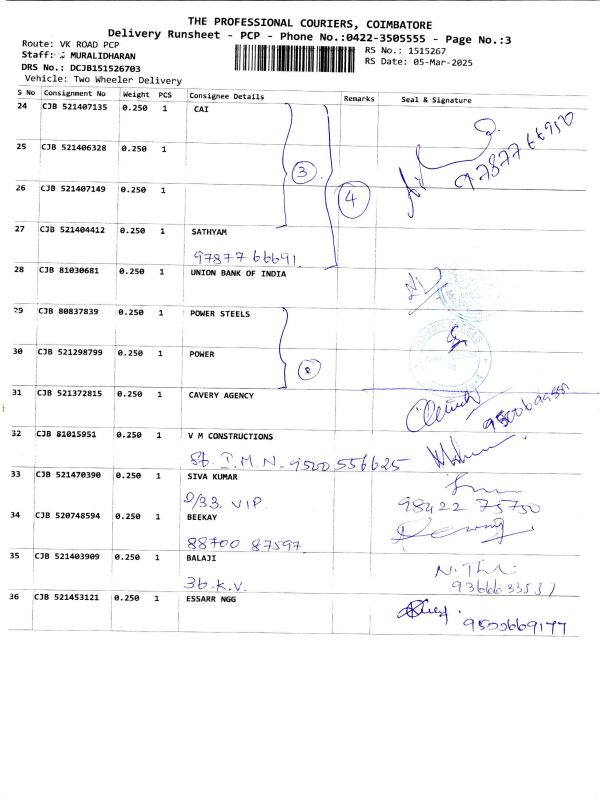 THE PROFESSIONAL COURIERS, COIMBATORE
Delivery Runsheet - PCP - Phone No.:0422-3505555 - Page No.:3
Route: VK ROAD PCP
RS No.: 1515267
Staff: MURALIDHARAN
RS Date: 05-Mar-2025
DRS No.: DCJB151526703
Vehicle: Two Wheeler Delivery
S No Consignment No Weight PCS Consignee Details Remarks Seal & Signature
24 CJB 521407135 0.250 1 CAI
25 CJB 521406328 0.250 1
97877 66950
3
26 CJB 521407149 0.250 1
4
27 CJB 521404412 0.250 1 SATHYAM
97877 66691
28 CJB 81030681 0.250 1 UNION BANK OF INDIA
29 CJB 80837839 0.250 1 POWER STEELS
30 CJB 521298799 0.250 1 POWER
2
31 CJB 521372815 0.250 1 CAVERY AGENCY
32 CJB 81015951 0.250 1 V M CONSTRUCTIONS
T.M.N. 9500 556625
33 CJB 521470390 0.250 1 SIVA KUMAR
2/33. VIP.
98422 75750
34 CJB 520748594 0.250 1 BEEKAY
88700 87597
35 CJB 521403909 0.250 1 BALAJI
36.K.V.
36 CJB 521453121 0.250 1 ESSARR NGG
9500669177